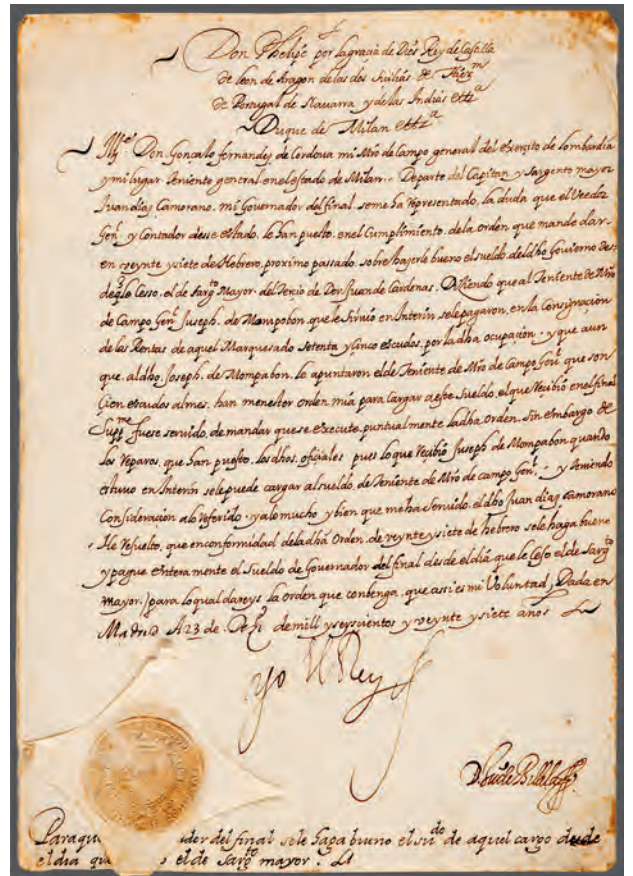 Don Phelipe por la gracia de Dios Rey de Castilla
de leon de Aragon de las dos Sicilias de Hierm
de Portugal de Navarra y de las Indias etta
Duque de Milan etta
Don Gonçalo fernandez de Cordova mi Mro de Campo general del exercito de lombardia
y mi lugar Teniente general en el estado de Milan. De parte del Capitan y Sargento mayor
Juan dias Camorano, mi Governador del final, se me ha representado, la duda que el Veedor
Genl y Contador desse estado, le han puesto, en el Cumplimiento, de la orden que mande dar
en veynte y siete de Hebrero, proximo passado, sobre hazerle bueno el sueldo del dho Govierno des
de q le Cesso, el de Sargto Mayor del Tercio de Don Juan de Cardenas, Diziendo que al Teniente de Mro
de Campo Genl Joseph. de Mompabon, que le sirvio en Interin se le pagaron, en la Consignacion
de las Rentas de aquel Marquesado setenta y Cinco escudos, por la dha ocupacion, y que aun
que, al dho. Joseph. de Mompabon, le apuntaron el de Teniente de Mro de Campo Genl que son
Cien escudos al mes, han menester orden mia para Cargar a este Sueldo, el que Recibio en el final
Suppme fuese servido, de mandar que se execute, puntualmente la dha orden, sin embargo de
los Reparos, que han puesto, los dhos. oficiales pues lo que Recibio Joseph de Mompabon quando
estuvo en Interin se le puede cargar al sueldo, de Teniente de Mro de campo Genl. y Teniendo
Consideracion a lo Referido, y a lo mucho, y bien que me ha servido, el dho Juan dias Camorano
He Resuelto, que en conformidad de la dha Orden de veynte y siete de hebrero se le haga bueno
y pague enteramente el Sueldo de Governador del final desde el dia que le Cesso el de Sargto
mayor, para lo qual dareys la orden que convenga, que assi es mi Voluntad, Dada en
Madrid A 23 de de mill y seyscientos y veynte y siete años
Yo El Rey
Para qu dor del final se le haga bueno el sudo de aquel cargo desde
el dia qu o el de Sargto mayor.